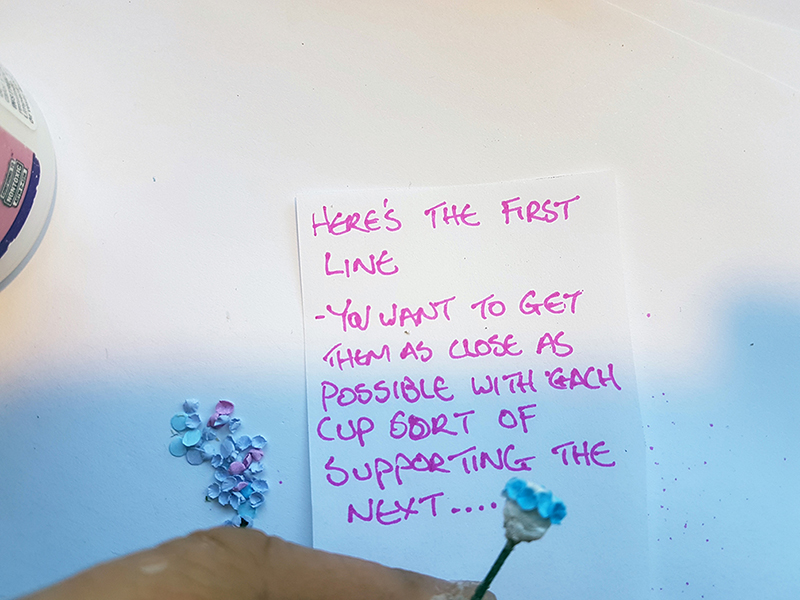 HERE'S THE FIRST
LINE
- YOU WANT TO GET
THEM AS CLOSE AS
POSSIBLE WITH EACH
CUP SORT OF
SUPPORTING THE
NEXT....